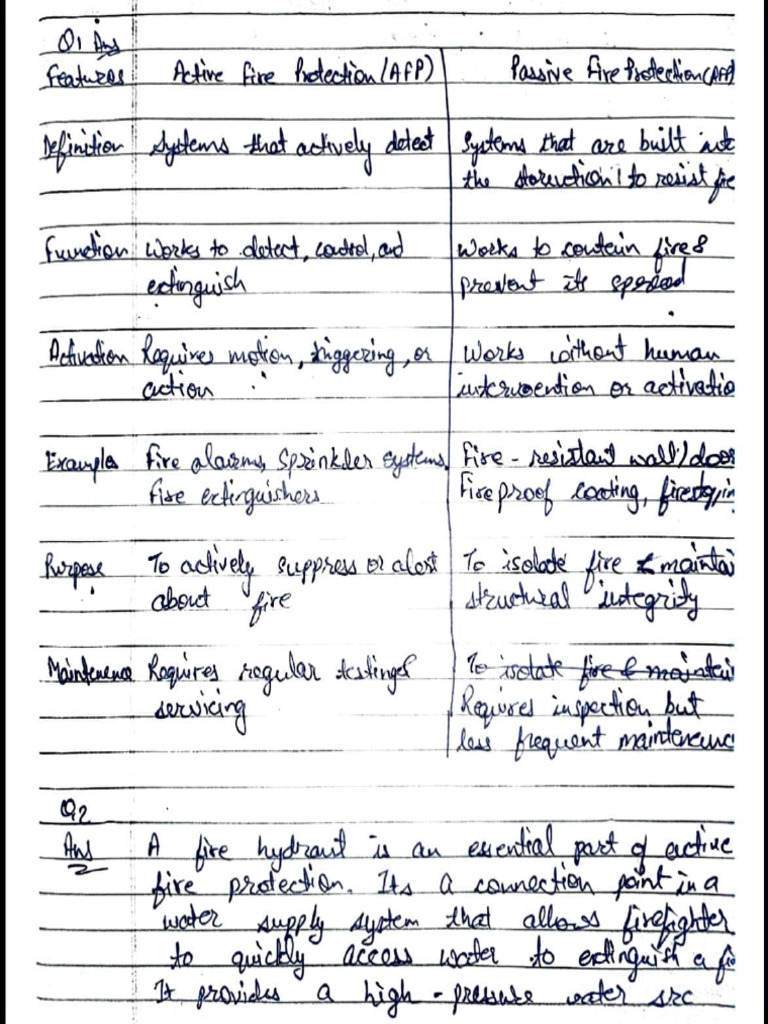 Q1 Ans
Features Active Fire Protection (AFP) Passive Fire Protection (PFP)
Definition Systems that actively detect Systems that are built into
the to resist fire
Function Works to detect, control, and Works to contain fire &
extinguish prevent its spread
Activation Requires motion, triggering, or Works without human
action intervention or activatio
Examples Fire alarms, Sprinkler systems, Fire-resistant wall/door
Fire extinguishers Fireproof coating,
Purpose To actively suppress or alert To isolate fire & maintai
about fire structural integrity
Maintenence Requires regular testing & To isolate fire & maintai
servicing Requires inspection but
less frequent maintenenc
Q2
Ans A fire hydrant is an essential part of active
fire protection. Its a connection point in a
water supply system that allows firefighter
to quickly access water to extinguish a fi
It provides a high-pressure water src